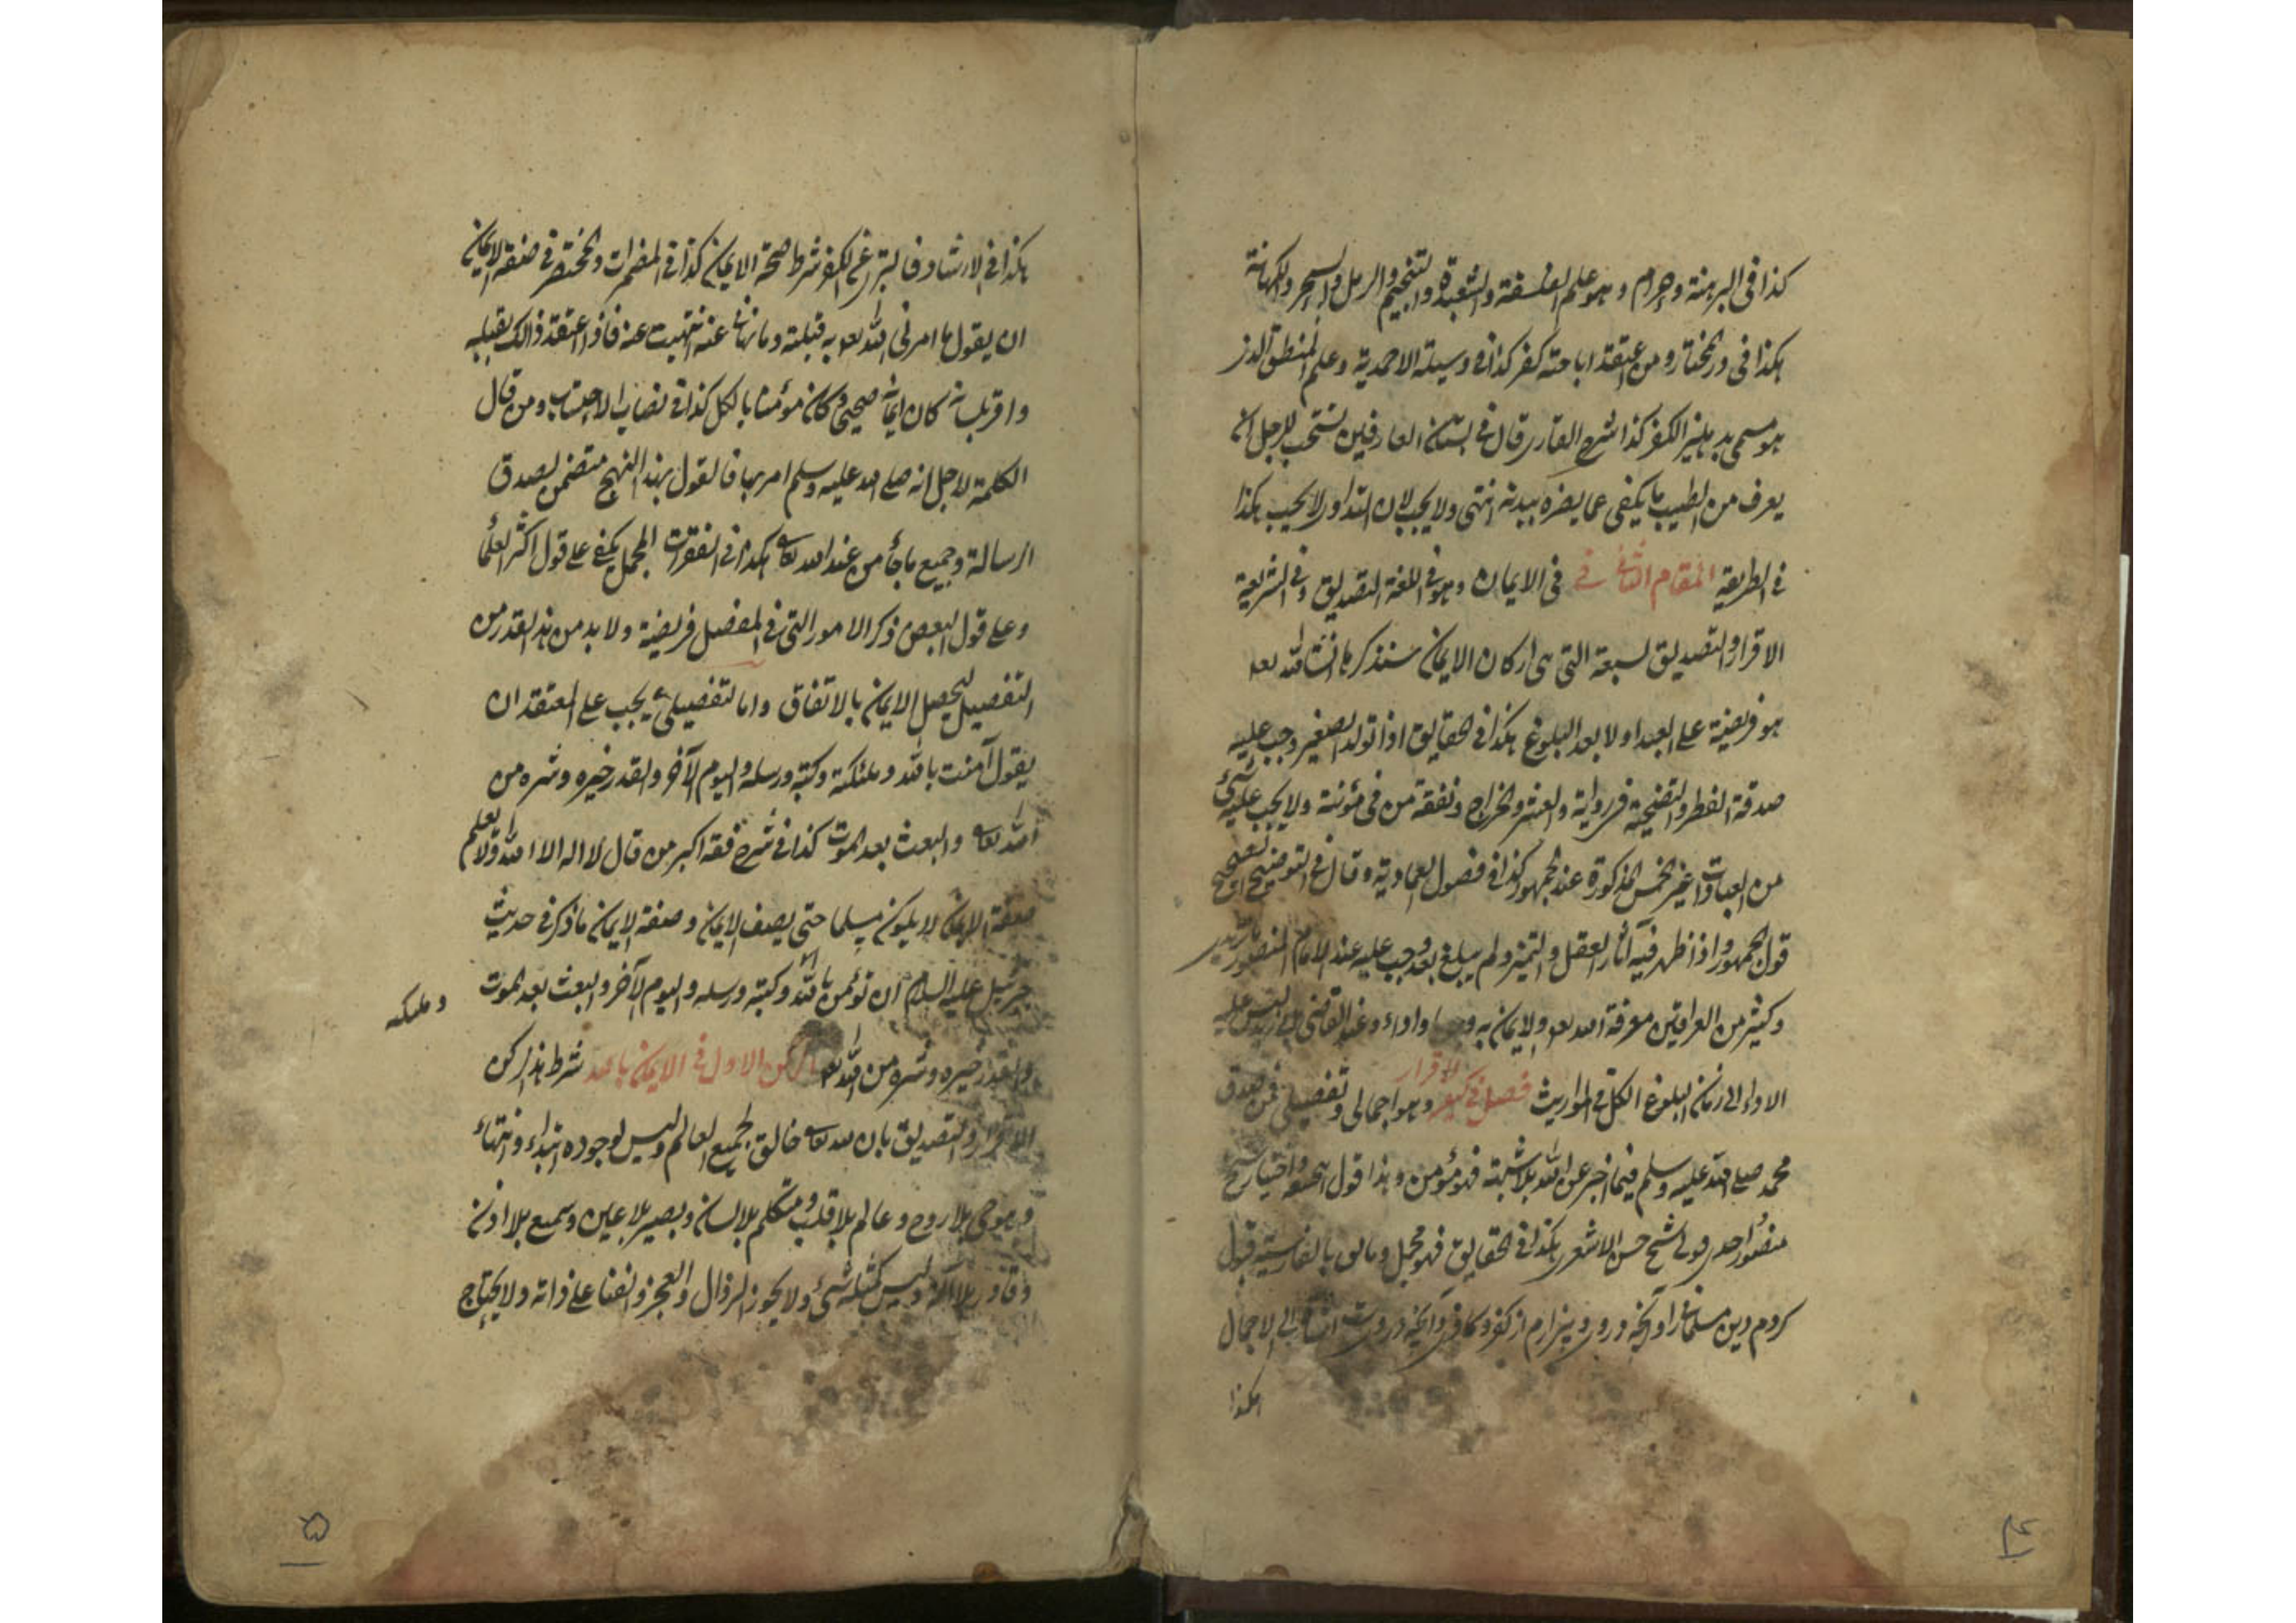 كذا فى البرهنة وحرام وهو علم الفلسفة والشعبدة والتنجيم والرمل والسحر والكهانة
هكذا فى درمختار ومن اعتقد اباحته كفر كذا فى وسيلة الاحمدية وعلم المنطق الذى
هو مسمى بدهليز الكفر كذا شرح القارى قال فى بستان العارفين يستحب للرجل ان
يعرف من الطب ما يكفى عما يضره ببدنه انتهى ولا يجب لان التداوى لا يجب هكذا
فى الطريقة المقام الثانى فى فى الايمان وهو فى اللغة التصديق وفى الشريعة
الاقرار والتصديق لسبعة التى هى اركان الايمان سنذكرها انشاء الله تعا
هو فريضة على العبد اولا بعد البلوغ هكذا فى الحقايق اذا تولد الصغير وجب عليه
صدقة الفطر والتضحية فى رواية والعشر والخراج ونفقة من فى مؤنته ولا يجب عليه شئ
من العبادات غير الخمس المذكورة عند الجمهور كذا فى فصول العمادية وقال فى التوضيح الصحيح
قول الجمهور واذا ظهر فيه آثار العقل والتميز ولم يبلغ بعد وجب عليه عند الامام المنصور ماتريدى
وكثير من العراقين معرفة الله تعا والايمان به وجوبا واداء وعند القاضى ابى زيد ليس عليه
الاداء الى زمان البلوغ الكل فى المواريث فصل فى كيفية الاقرار وهو اجمالى وتفصيلى فمن صدق
محمد صلى الله عليه وسلم فيما اخبر عن الله بلا شبهة فهو مؤمن وهذا قول واختيار شيخ
منصور احدى قولى الشيخ حسن الاشعرى هكذا فى الحقايق فهو مجمل وما بالفارسية قبول
كردم دين مسلمانى را وآنچه دروى وبيزارم از كفر وكافرى وآنچه دروى الى الاجمال
هكذا
هكذا فى الارشاد فالتبرئ عن الكفر شرط صحة الايمان كذا فى المضمرات والمختصر فى صفة الايمان
ان يقول ما امرنى الله تعا به قبلته وما نهانى عنه انتهيت عنه فاذا اعتقد ذالك بقلبه
واقر بلسانه كان ايمانه صحيحى وكان مؤمنا بالكل كذا فى نصاب الاحتساب ومن قال
الكلمة لاجل انه صلى الله عليه وسلم امر بها فالقول بهذا النهج متضمن لصدق
الرسالة وجميع ماجأ من عند الله تعالى هكذا فى المجمل يكفى على قول اكثر العلمأ
وعلى قول البعض ذكر الامور التى فى المفصل فريضة ولا بد من هذا القدر من
التفصيل ليحصل الايمان بالاتفاق واما التفصيلى يجب على المعتقد ان
يقول آمنت بالله وملئكته وكتبه ورسله واليوم الآخر والقدر خيره وشره من
الله تعالى والبعث بعد الموت كذا فى شرح فقه اكبر من قال لا اله الا الله ولا يعلم
صفة الايمان لا يكون مسلما حتى يصف الايمان وصفة الايمان ما ذكر فى حديث
جبرئيل عليه السلام ان تؤمن بالله وكتبه ورسله واليوم الآخر والبعث بعد الموت
وملئكته
والقدر خيره وشره من الله تعا الركن الاول فى الايمان بالله شرط هذا الركن
الاقرار والتصديق بان الله تعالى خالق لجميع العالم وليس لوجوده ابتداء وانتهاء
وهو حى بلا روح وعالم بلا قلب ومتكلم بلا لسان وبصير بلا عين وسميع بلا اذن
وقادر بلا آلة وليس كمثله شئ ولا يجوز الزوال والعجز والفنا على ذاته ولا يحتاج
٤
٥